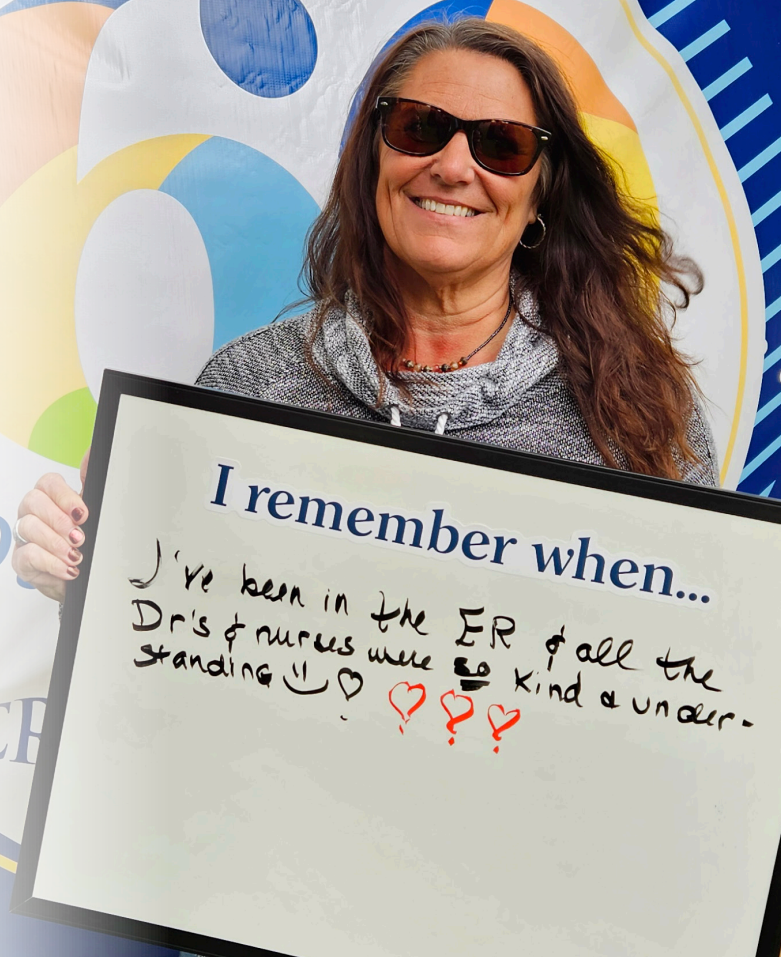 I remember when...
I've been in the ER & all the
Dr's & nurses were so kind & under-
standing